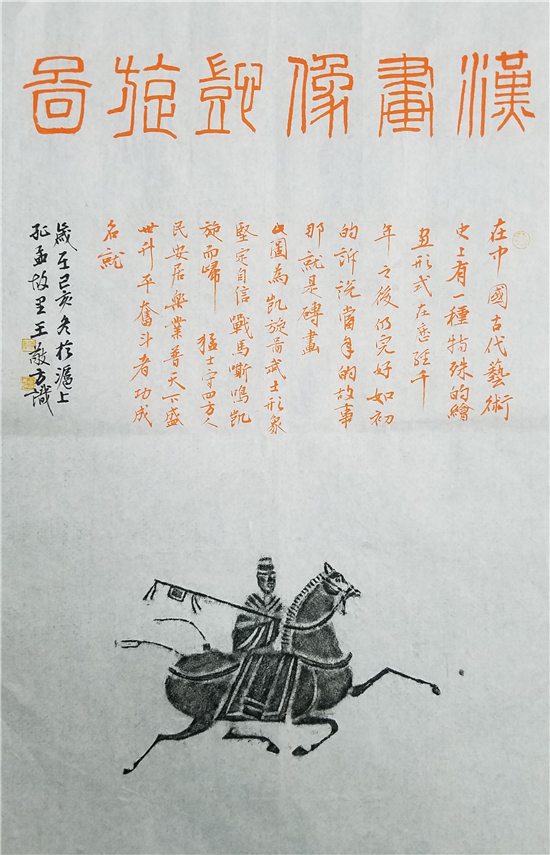 漢畫像凱旋圖
在中國古代藝術
史上有一種特殊的繪
畫形式在歷經千
年之後仍完好如初
的訴說當年的故事
那就是磚畫
此圖為凱旋圖武士形象
堅定自信戰馬嘶鳴凱
旋而歸 猛士守四方人
民安居樂業普天下盛
世升平奮斗者功成
名就
歲在己亥冬於滬上
孔孟故里王敬方識